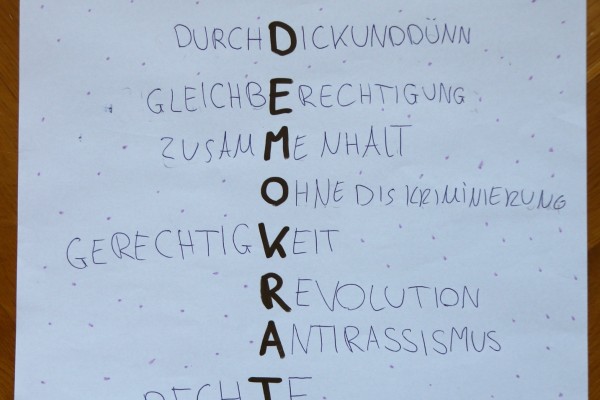 DURCHDICKUNDDÜNN
GLEICHBERECHTIGUNG
ZUSAMMENHALT
OHNE DISKRIMINIERUNG
GERECHTIGKEIT
REVOLUTION
ANTIRASSISMUS
RECHTE